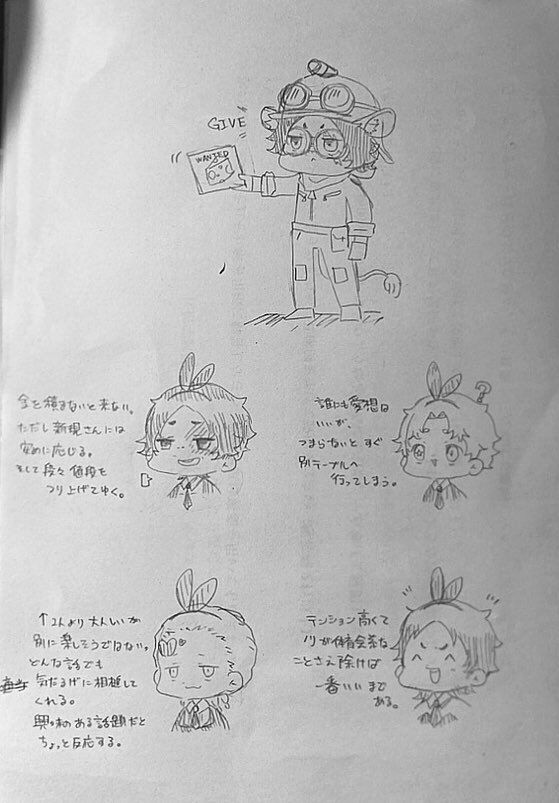 GIVE
WANTED
金を積まないと来ない。
ただし新規さんには
安めに応じる。
そして段々値段を
つり上げてゆく。
誰にも愛想は
いいが、
つまらないとすぐ
別テーブルへ
行ってしまう。
↑2人より大人しいが
別に楽しそうではない。
どんな話でも
気だるげに相槌して
くれる。
興味のある話題だと
ちょっと反応する。
テンション高くて
ノリが体育会系な
ことさえ除けば
一番いいまで
ある。